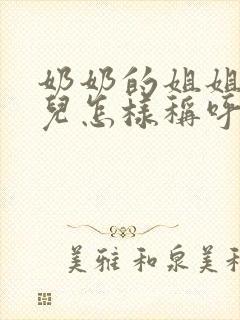 奶奶的姐姐
兒怎樣稱呼
美雅 和泉美和